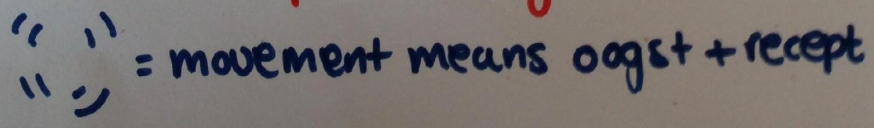 = movement means oogst + recept